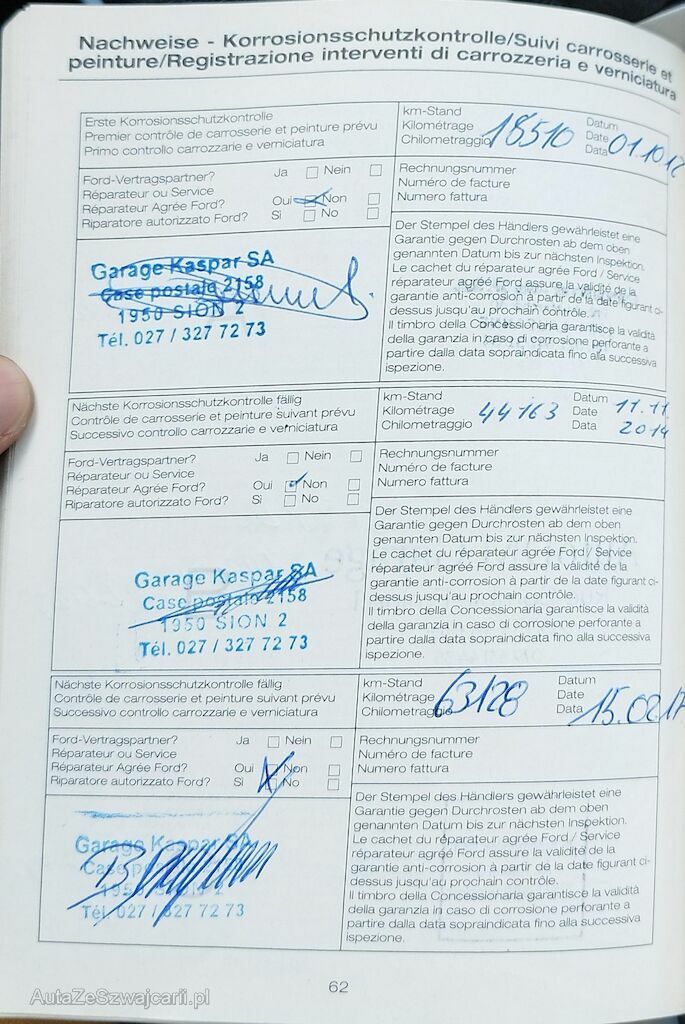 Nachweise - Korrosionsschutzkontrolle/Suivi carrosserie et
peinture/Registrazione interventi di carrozzeria e verniciatura
Erste Korrosionsschutzkontrolle
Premier contrôle de carrosserie et peinture prévu
Primo controllo carrozzarie e verniciatura
km-Stand
Kilométrage
Chilometraggio
18510
Datum
Date
Data
01.10.12
Ford-Vertragspartner? Ja Nein
Réparateur ou Service
Réparateur Agrée Ford? Oui Non
Riparatore autorizzato Ford? Sì No
Rechnungsnummer
Numéro de facture
Numero fattura
Garage Kaspar SA
Case postale 2158
1950 SION 2
Tél. 027 / 327 72 73
Der Stempel des Händlers gewährleistet eine
Garantie gegen Durchrosten ab dem oben
genannten Datum bis zur nächsten Inspektion.
Le cachet du réparateur agrée Ford / Service
réparateur agréé Ford assure la validité de la
garantie anti-corrosion à partir de la date figurant ci-
dessus jusqu'au prochain contrôle.
Il timbro della Concessionaria garantisce la validità
della garanzia in caso di corrosione perforante a
partire dalla data sopraindicata fino alla successiva
ispezione.
Nächste Korrosionsschutzkontrolle fällig
Contrôle de carrosserie et peinture suivant prévu
Successivo controllo carrozzarie e verniciatura
km-Stand
Kilométrage
Chilometraggio
44163
Datum
Date
Data
11.11
2014
Ford-Vertragspartner? Ja Nein
Réparateur ou Service
Réparateur Agrée Ford? Oui Non
Riparatore autorizzato Ford? Sì No
Rechnungsnummer
Numéro de facture
Numero fattura
Garage Kaspar SA
Case postale 2158
1950 SION 2
Tél. 027 / 327 72 73
Der Stempel des Händlers gewährleistet eine
Garantie gegen Durchrosten ab dem oben
genannten Datum bis zur nächsten Inspektion.
Le cachet du réparateur agrée Ford / Service
réparateur agréé Ford assure la validité de la
garantie anti-corrosion à partir de la date figurant ci-
dessus jusqu'au prochain contrôle.
Il timbro della Concessionaria garantisce la validità
della garanzia in caso di corrosione perforante a
partire dalla data sopraindicata fino alla successiva
ispezione.
Nächste Korrosionsschutzkontrolle fällig
Contrôle de carrosserie et peinture suivant prévu
Successivo controllo carrozzarie e verniciatura
km-Stand
Kilométrage
Chilometraggio
63128
Datum
Date
Data
15.02.17
Ford-Vertragspartner? Ja Nein
Réparateur ou Service
Réparateur Agrée Ford? Oui Non
Riparatore autorizzato Ford? Sì No
Rechnungsnummer
Numéro de facture
Numero fattura
Garage Kaspar SA
Case
1950 2
Tél. 027 / 327 72 73
Der Stempel des Händlers gewährleistet eine
Garantie gegen Durchrosten ab dem oben
genannten Datum bis zur nächsten Inspektion.
Le cachet du réparateur agrée Ford / Service
réparateur agréé Ford assure la validité de la
garantie anti-corrosion à partir de la date figurant ci-
dessus jusqu'au prochain contrôle.
Il timbro della Concessionaria garantisce la validità
della garanzia in caso di corrosione perforante a
partire dalla data sopraindicata fino alla successiva
ispezione.
62
AutaZeSzwajcarii.pl